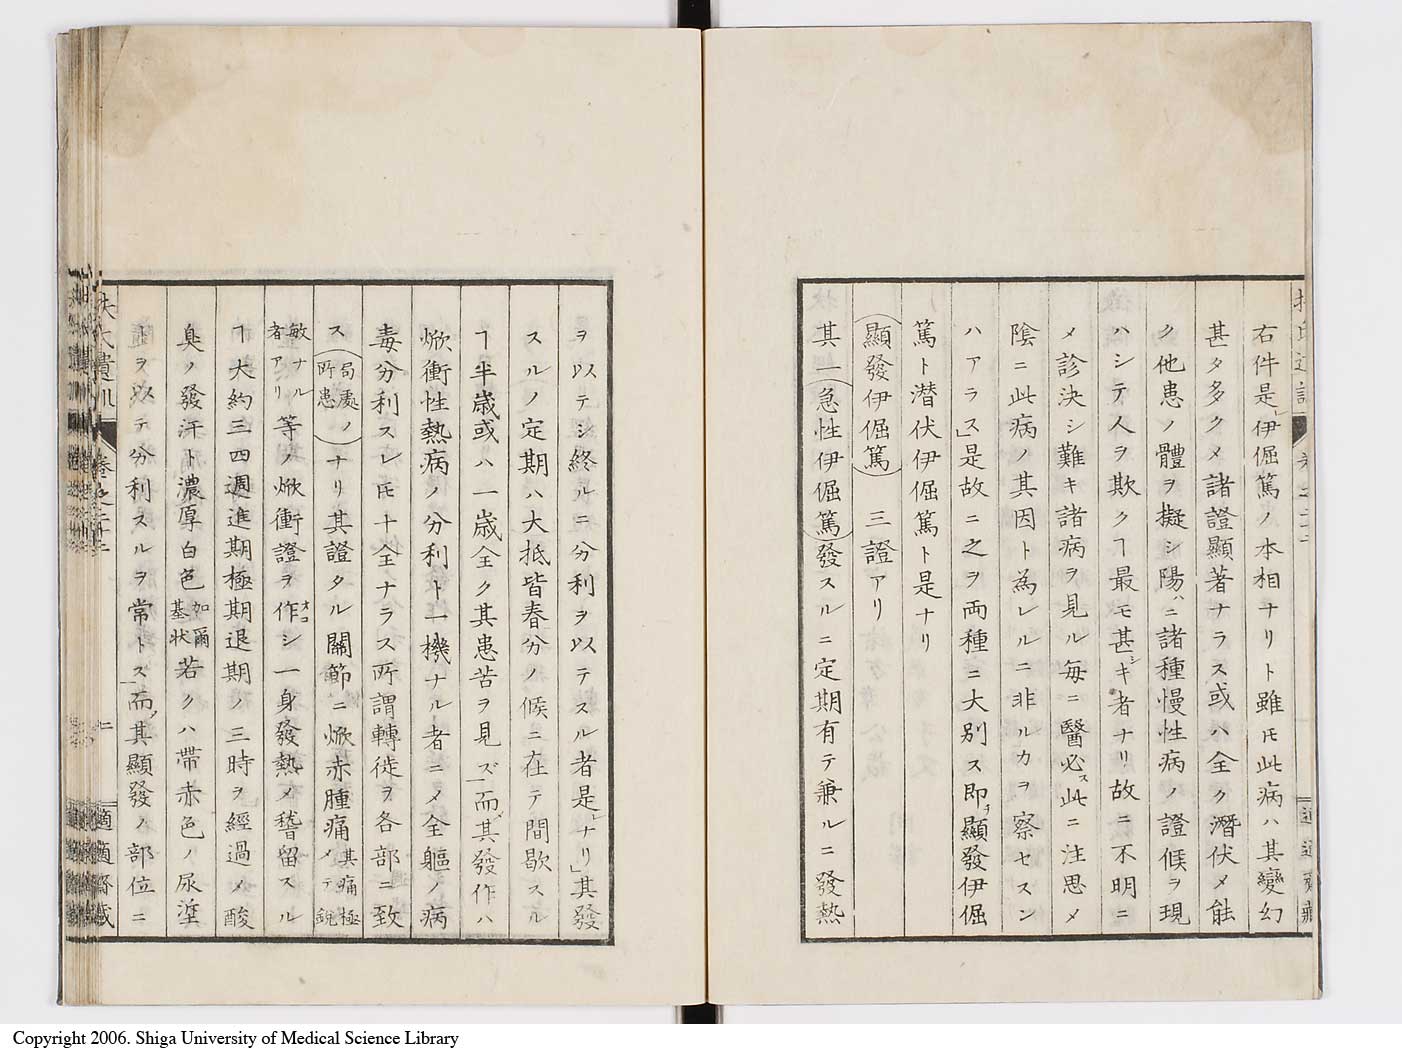 右件是レ伊倔篤ノ本相ナリト雖𪜈此病ハ其變幻
甚タ多クメ諸證顯著ナラス或ハ全ク潛伏メ能
ク他患ノ體ヲ擬シ陽ハニ諸種慢性病ノ證候ヲ現
ハシテ人ヲ欺クヿ最モ甚シキ者ナリ故ニ不明ニ
メ診決シ難キ諸病ヲ見ル每ニ醫必ス此ニ注思メ
陰ニ此病ノ其因ト為レルニ非ルカヲ察セスン
ハアラス」是故ニ之ヲ両種ニ大別ス即チ顯發伊倔
篤ト潜伏伊倔篤ト是ナリ
(顯發伊倔篤) 三證アリ
其一(急性伊倔篤)發スルニ定期有テ兼ルニ發熱
ヲ以テシ終ルニ分利ヲ以テスル者是レナリ」其發
スルノ定期ハ大抵皆春分ノ候ニ在テ間歇スル
ヿ半歳或ハ一歳全ク其患苦ヲ見ズ」而其發作ハ
焮衝性熱病ノ分利ト一機ナル者ニメ全軀ノ病
毒分利スレ𪜈十全ナラス所謂轉徙ヲ各部ニ致
ス(局處ノ所患)ナリ其證タル關節ニ焮赤腫痛メ其痛極テ鋭
敏ナル者アリ等ノ焮衝證ヲ作オコシ一身發熱メ稽留スル
ヿ大約三四週進期極期退期ノ三時ヲ經過メ酸
臭ノ發汗ト濃厚白色加爾基状若クハ帶赤色ノ尿滓
トヲ以テ分利スルヲ常トス」而其顯發ノ部位ニ
扶氏遺訓
卷之二十二
二
適適齋藏
Copyright 2006. Shiga University of Medical Science Library